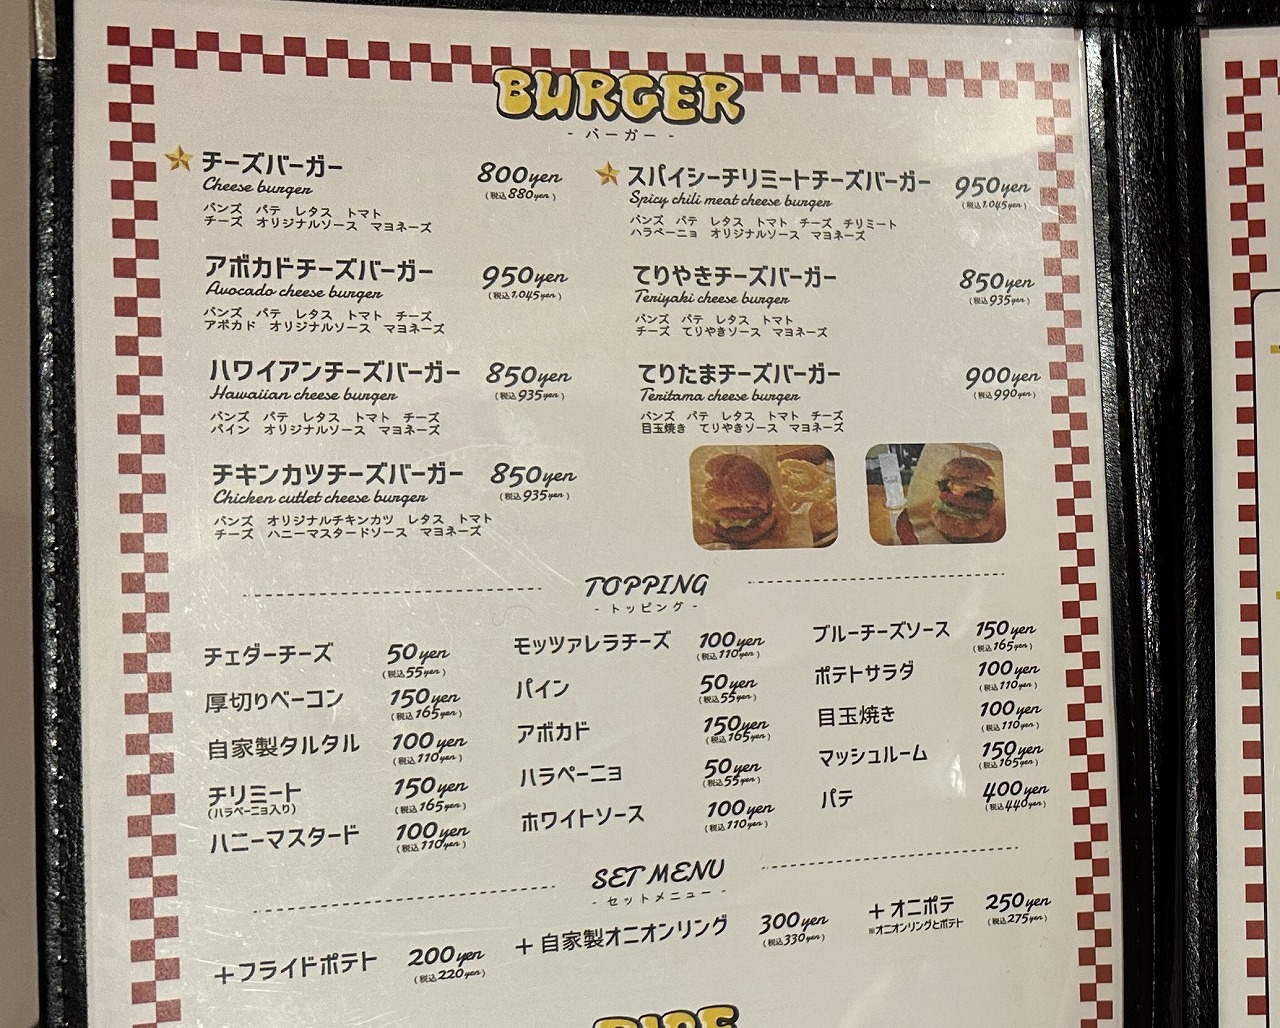 BURGER
- バーガー -
チーズバーガー 800yen
Cheese burger (税込880yen)
バンズ パテ レタス トマト
チーズ オリジナルソース マヨネーズ
アボカドチーズバーガー 950yen
Avocado cheese burger (税込1,045yen)
バンズ パテ レタス トマト チーズ
アボカド オリジナルソース マヨネーズ
ハワイアンチーズバーガー 850yen
Hawaiian cheese burger (税込935yen)
バンズ パテ レタス トマト チーズ
パイン オリジナルソース マヨネーズ
チキンカツチーズバーガー 850yen
Chicken cutlet cheese burger (税込935yen)
バンズ オリジナルチキンカツ レタス トマト
チーズ ハニーマスタードソース マヨネーズ
スパイシーチリミートチーズバーガー 950yen
Spicy chili meat cheese burger (税込1,045yen)
バンズ パテ レタス トマト チーズ チリミート
ハラペーニョ オリジナルソース マヨネーズ
てりやきチーズバーガー 850yen
Teriyaki cheese burger (税込935yen)
バンズ パテ レタス トマト
チーズ てりやきソース マヨネーズ
てりたまチーズバーガー 900yen
Teritama cheese burger (税込990yen)
バンズ パテ レタス トマト チーズ
目玉焼き てりやきソース マヨネーズ
TOPPING
- トッピング -
チェダーチーズ 50yen
(税込55yen)
厚切りベーコン 150yen
(税込165yen)
自家製タルタル 100yen
(税込110yen)
チリミート 150yen
(ハラペーニョ入り) (税込165yen)
ハニーマスタード 100yen
(税込110yen)
モッツァレラチーズ 100yen
(税込110yen)
パイン 50yen
(税込55yen)
アボカド 150yen
(税込165yen)
ハラペーニョ 50yen
(税込55yen)
ホワイトソース 100yen
(税込110yen)
ブルーチーズソース 150yen
(税込165yen)
ポテトサラダ 100yen
(税込110yen)
目玉焼き 100yen
(税込110yen)
マッシュルーム 150yen
(税込165yen)
パテ 400yen
(税込440yen)
SET MENU
- セットメニュー -
+フライドポテト 200yen
(税込220yen)
+自家製オニオンリング 300yen
(税込330yen)
+オニポテ 250yen
※オニオンリングとポテト (税込275yen)